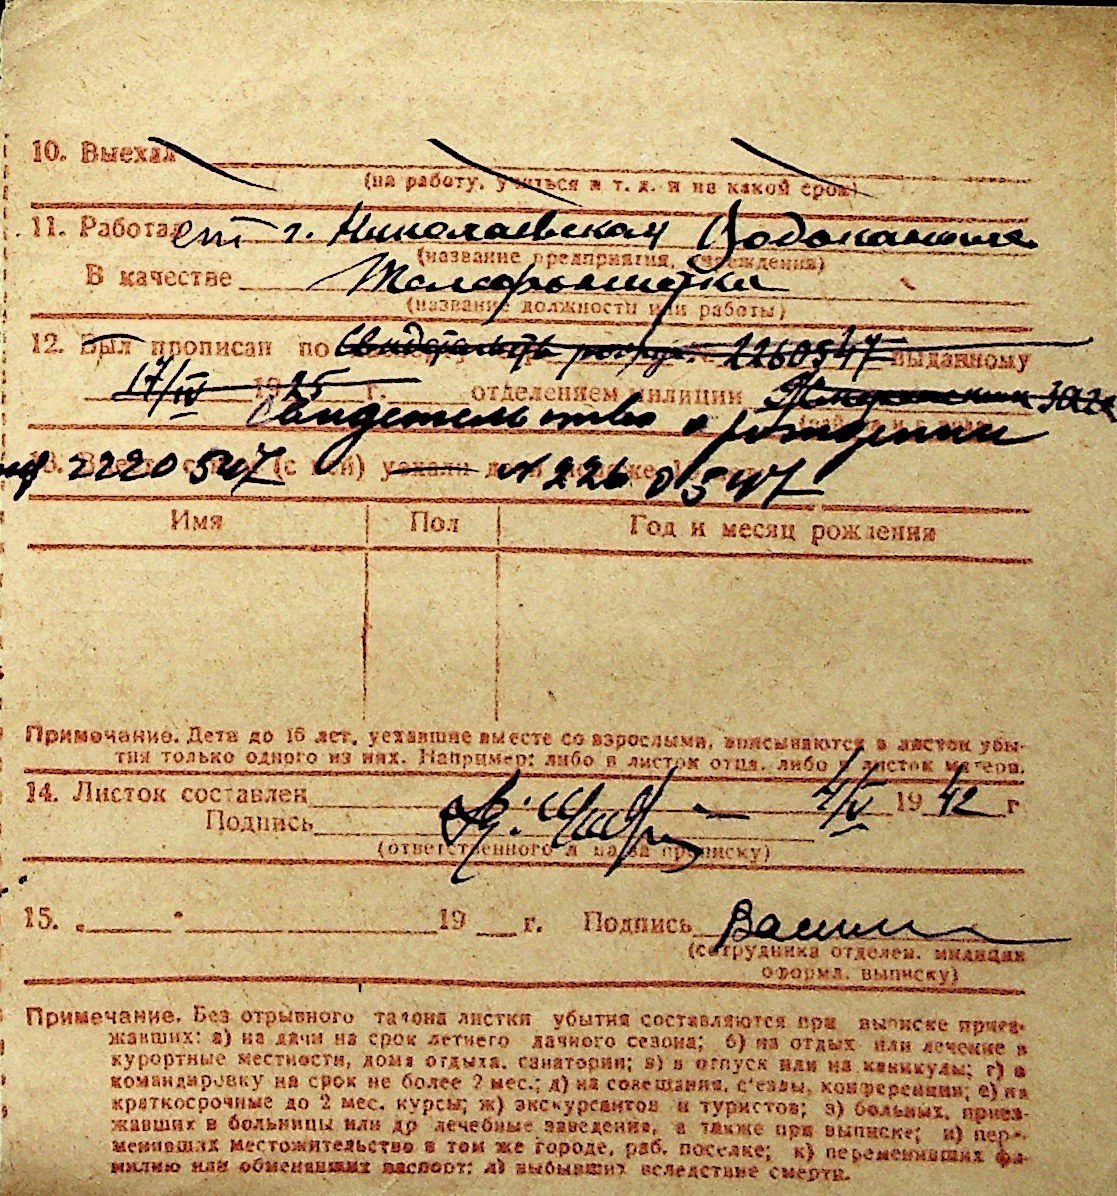 10. Выехал
(на работу, учиться и т. д. и на какой срок)
11. Работает г. Николаевская Водоканал
(название предприятия, учреждения)
В качестве Телефонистка
(название должности или работы)
12. Был прописан по свидетельству 2260547 выданному
17/IV 1925 г. отделением милиции
Свидетельство о рождении
2220547 (с ней) уехали № 2260547
Имя Пол Год и месяц рождения
Примечание. Дети до 16 лет, уехавшие вместе со взрослыми, вписываются в листок убы-
тия только одного из них. Например: либо в листок отца, либо в листок матери.
14. Листок составлен 4/V 1942 г
Подпись
(ответственного л на за прописку)
15. „ “ 19 г. Подпись Васил
(сотрудника отделен. милиции
оформл. выписку)
Примечание. Без отрывного талона листки убытия составляются при выписке приез-
жавших: а) на дачи на срок летнего дачного сезона; б) на отдых или лечение в
курортные местности, дома отдыха, санатории; в) в отпуск или на каникулы; г) в
командировку на срок не более 2 мес.; д) на совещания, съезды, конференции; е) на
краткосрочные до 2 мес. курсы; ж) экскурсантов и туристов; з) больных, приез-
жавших в больницы или др лечебные заведения, а также при выписке; и) пере-
менивших местожительство в том же городе, раб. поселке; к) переменивших фа-
милию или обменявших паспорт; л) выбывших вследствие смерти.